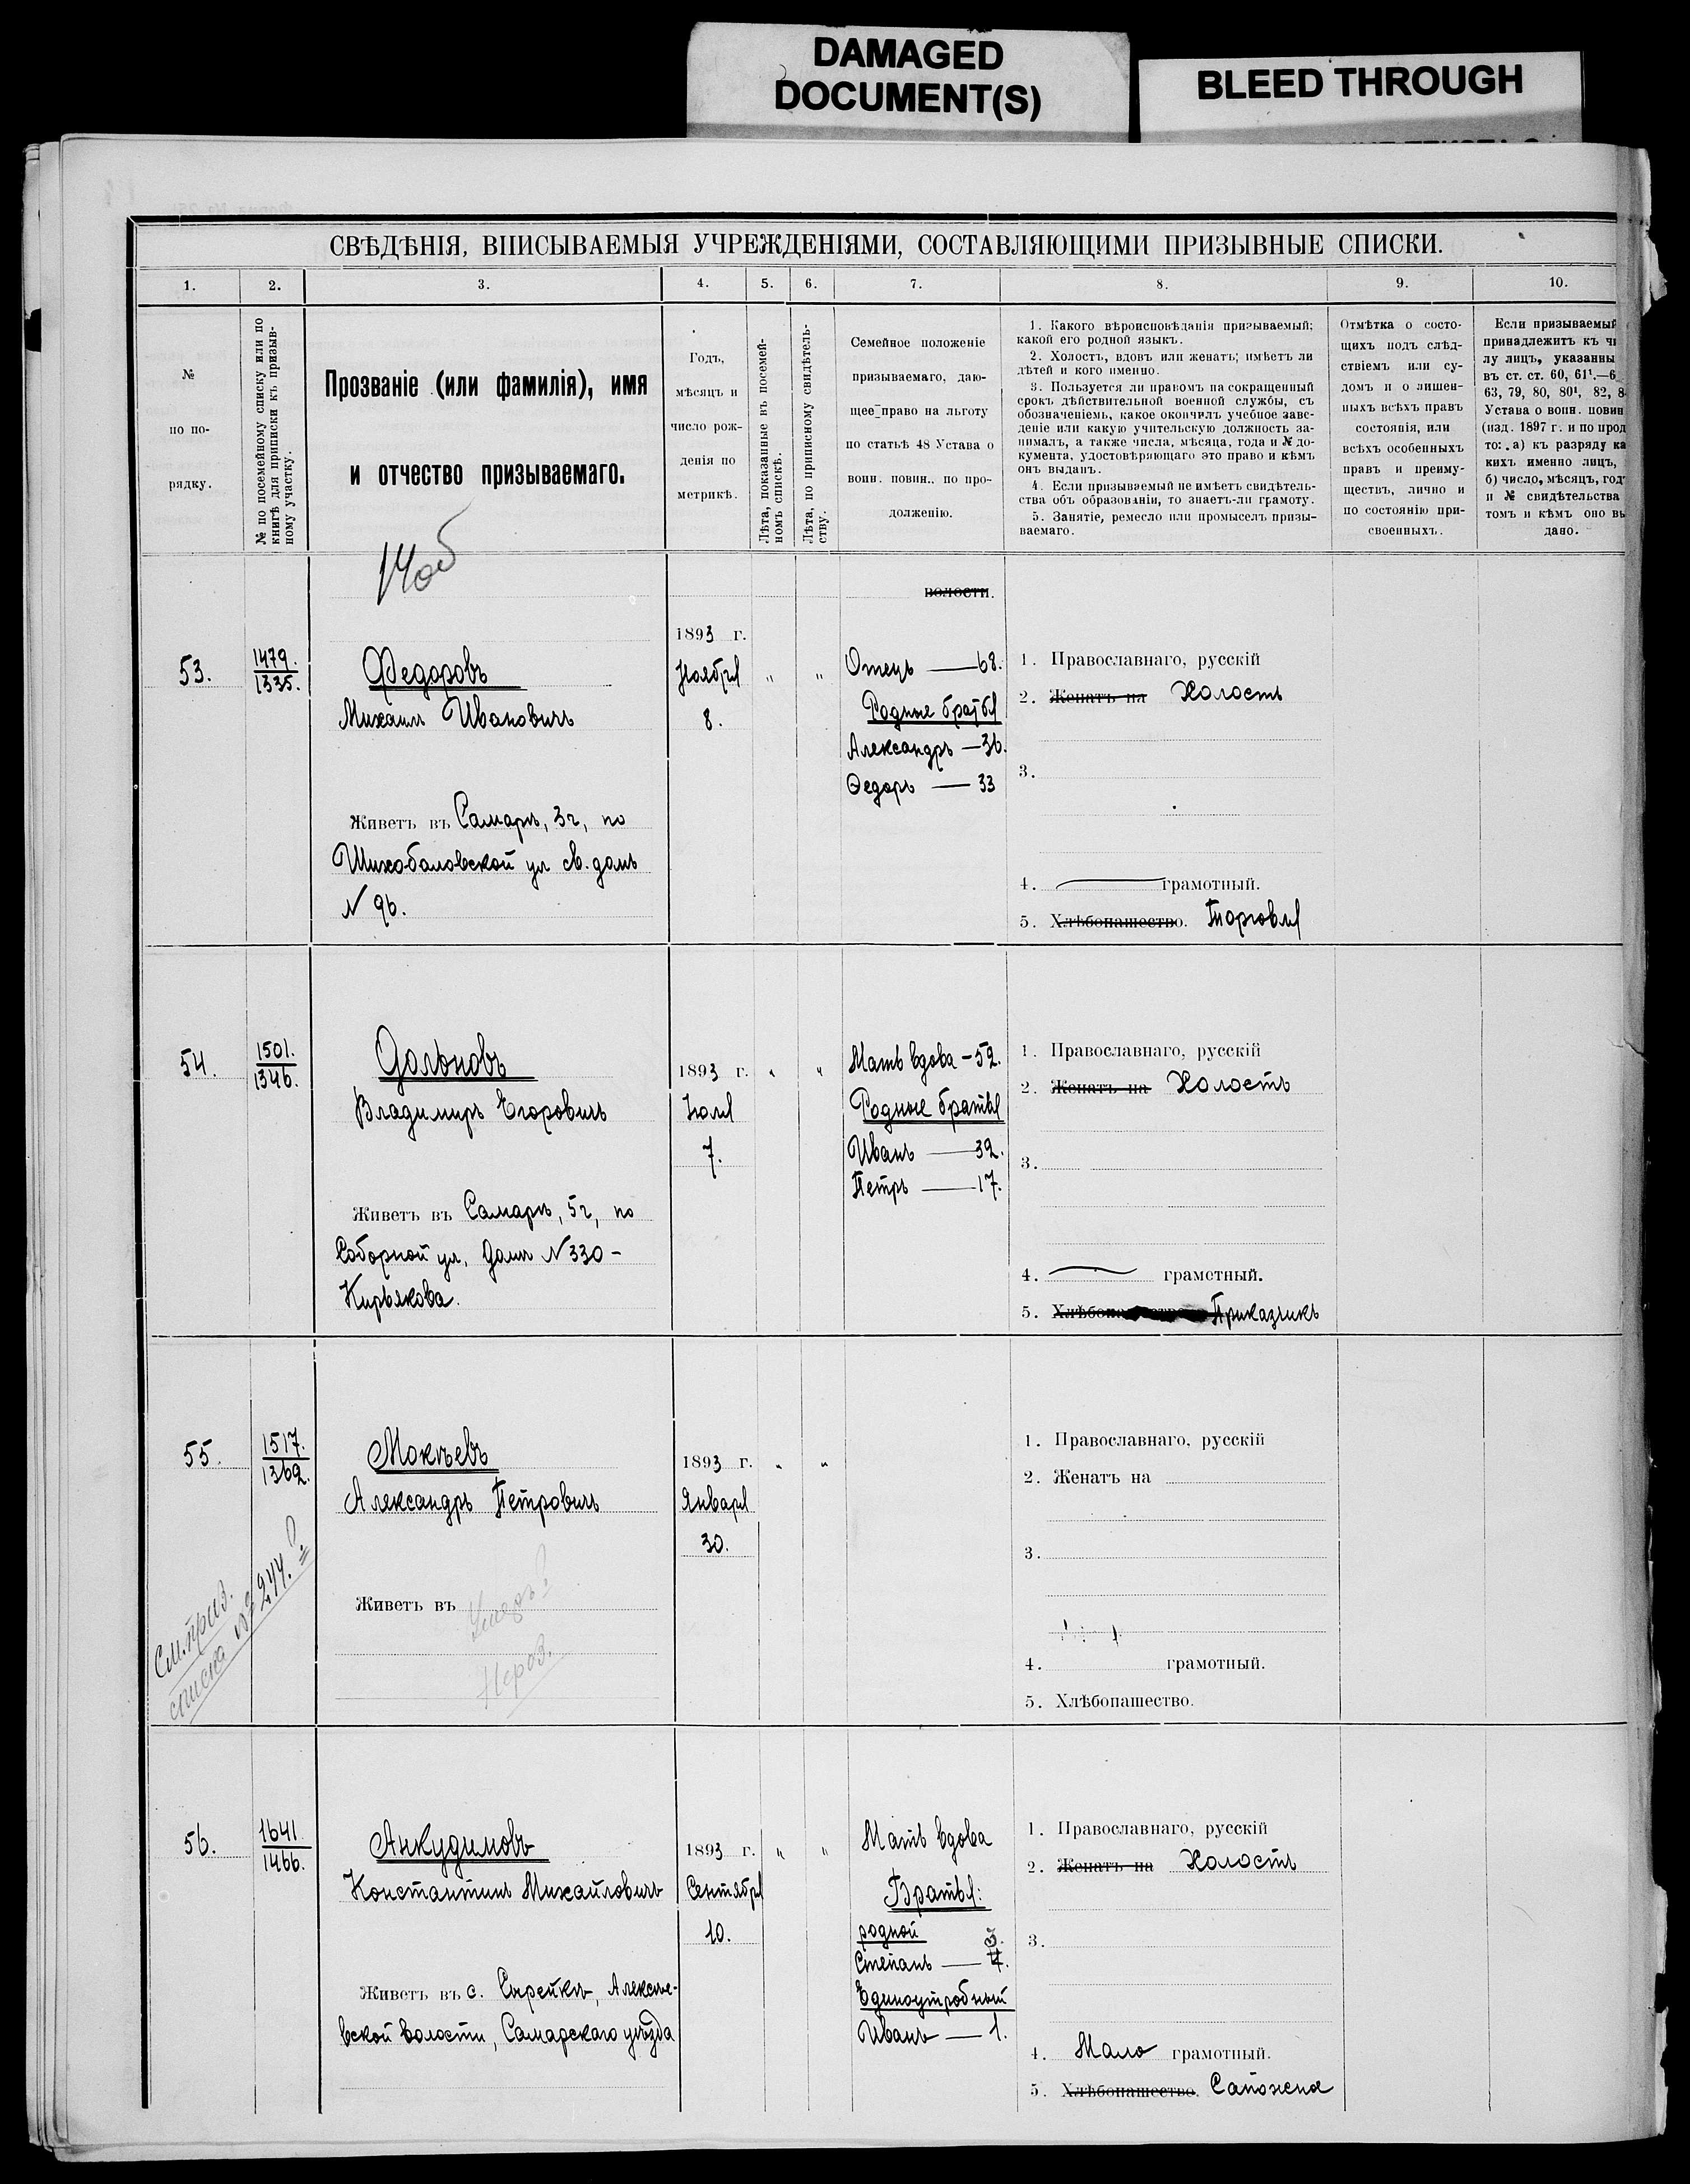 DAMAGED
DOCUMENT(S)
BLEED THROUGH
СВѢДѢНІЯ, ВПИСЫВАЕМЫЯ УЧРЕЖДЕНІЯМИ, СОСТАВЛЯЮЩИМИ ПРИЗЫВНЫЕ СПИСКИ.
1. 2. 3. 4. 5. 6. 7. 8. 9. 10.
№
по по-
рядку.
№ по посемейному списку или по
книгѣ для приписки къ призыв-
ному участку.
Прозваніе (или фамилія), имя
и отчество призываемаго.
Годъ,
мѣсяцъ и
число рож-
денія по
метрикѣ.
Лѣта, показанные въ посемей-
номъ спискѣ.
Лѣта, по приписному свидѣтель-
ству.
Семейное положеніе
призываемаго, даю-
щее право на льготу
по статьѣ 48 Устава о
воин. повин., по про-
долженію.
1. Какого вѣроисповѣданія призываемый;
какой его родной языкъ.
2. Холостъ, вдовъ или женатъ; имѣетъ ли
дѣтей и кого именно.
3. Пользуется ли правомъ на сокращенный
срокъ дѣйствительной военной службы, съ
обозначеніемъ, какое окончилъ учебное заве-
деніе или какую учительскую должность за-
нималъ, а также числа, мѣсяца, года и № до-
кумента, удостовѣряющаго это право и кѣмъ
онъ выданъ.
4. Если призываемый не имѣетъ свидѣтель-
ства объ образованіи, то знаетъ-ли грамоту.
5. Занятіе, ремесло или промыселъ призы-
ваемаго.
Отмѣтка о состо-
ящихъ подъ слѣд-
ствіемъ или су-
домъ и о лишен-
ныхъ всѣхъ правъ
состоянія, или
всѣхъ особенныхъ
правъ и преиму-
ществъ, лично и
по состоянію при-
своенныхъ.
Если призываемый
принадлежитъ къ чи
лу лицъ, указанны
въ ст. ст. 60, 61¹.—6
63, 79, 80, 80¹, 82, 8
Устава о воин. повин
(изд. 1897 г. и по прод
то: а) къ разряду ка
кихъ именно лицъ,
б) число, мѣсяцъ, год
и № свидѣтельства
томъ и кѣмъ оно вы
дано.
14об
волости.
53.
1479.
1335.
Федоровъ
Михаилъ Ивановичъ
Живетъ въ Самарѣ, 3ч, по
Шихобаловской ул св. домъ
№ 96.
1893 г.
Ноября
8.
" "
Отецъ — 68.
Родные братья
Александръ — 36.
Ѳедоръ — 33
1. Православнаго, русскій
2. Женатъ на Холостъ
3.
4. грамотный.
5. Хлѣбопашество. Торговля
54.
1501.
1346.
Дольновъ
Владимиръ Егоровичъ
Живетъ въ Самарѣ, 5ч, по
Соборной ул, домъ № 330 -
Кирьякова.
1893 г.
Іюля
7.
" "
Мать вдова - 52.
Родные братья
Иванъ — 32.
Петръ — 17.
1. Православнаго, русскій
2. Женатъ на Холостъ
3.
4. грамотный.
5. Приказчикъ
55.
1517.
1362.
Мокѣевъ
Александръ Петровичъ
Живетъ въ
Умеръ?
См. приз.
списка № 244.
1893 г.
Января
30.
" "
1. Православнаго, русскій
2. Женатъ на
3.
4. грамотный.
5. Хлѣбопашество.
56.
1641.
1466.
Анкудимовъ
Константинъ Михайловичъ
Живетъ въ с. Сырейкѣ, Алексѣе-
вской волости, Самарскаго уѣзда
1893 г.
Сентября
10.
" "
Мать вдова
Братья:
родной
Степанъ —
Единоутробный
Иванъ — 1.
1. Православнаго, русскій
2. Женатъ на Холостъ
3.
4. Мало грамотный.
5. Хлѣбопашество. Сапожное